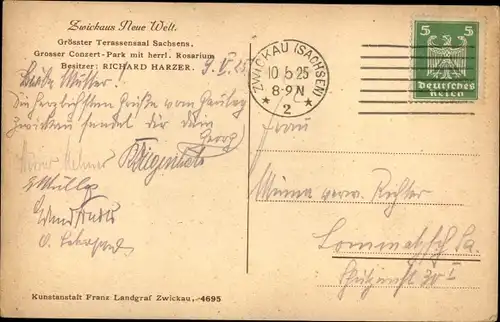 Zwickaus Neue Welt.
Grösster Terassensaal Sachsens,
Grosser Conzert-Park mit herrl. Rosarium
Besitzer: RICHARD HARZER.
9. V. 25.
Liebe Mutter!
Die herzlichsten Grüße vom Gautag
Zwickau sendet dir dein
Georg
E Müller
ZWICKAU (SACHSEN)
10.5.25
8-9 N
* 2 *
5 5
Deutsches
Reich
Frau
Minna verw. Richter
Lommatzsch Sa.
Kunstanstalt Franz Landgraf Zwickau, 4695